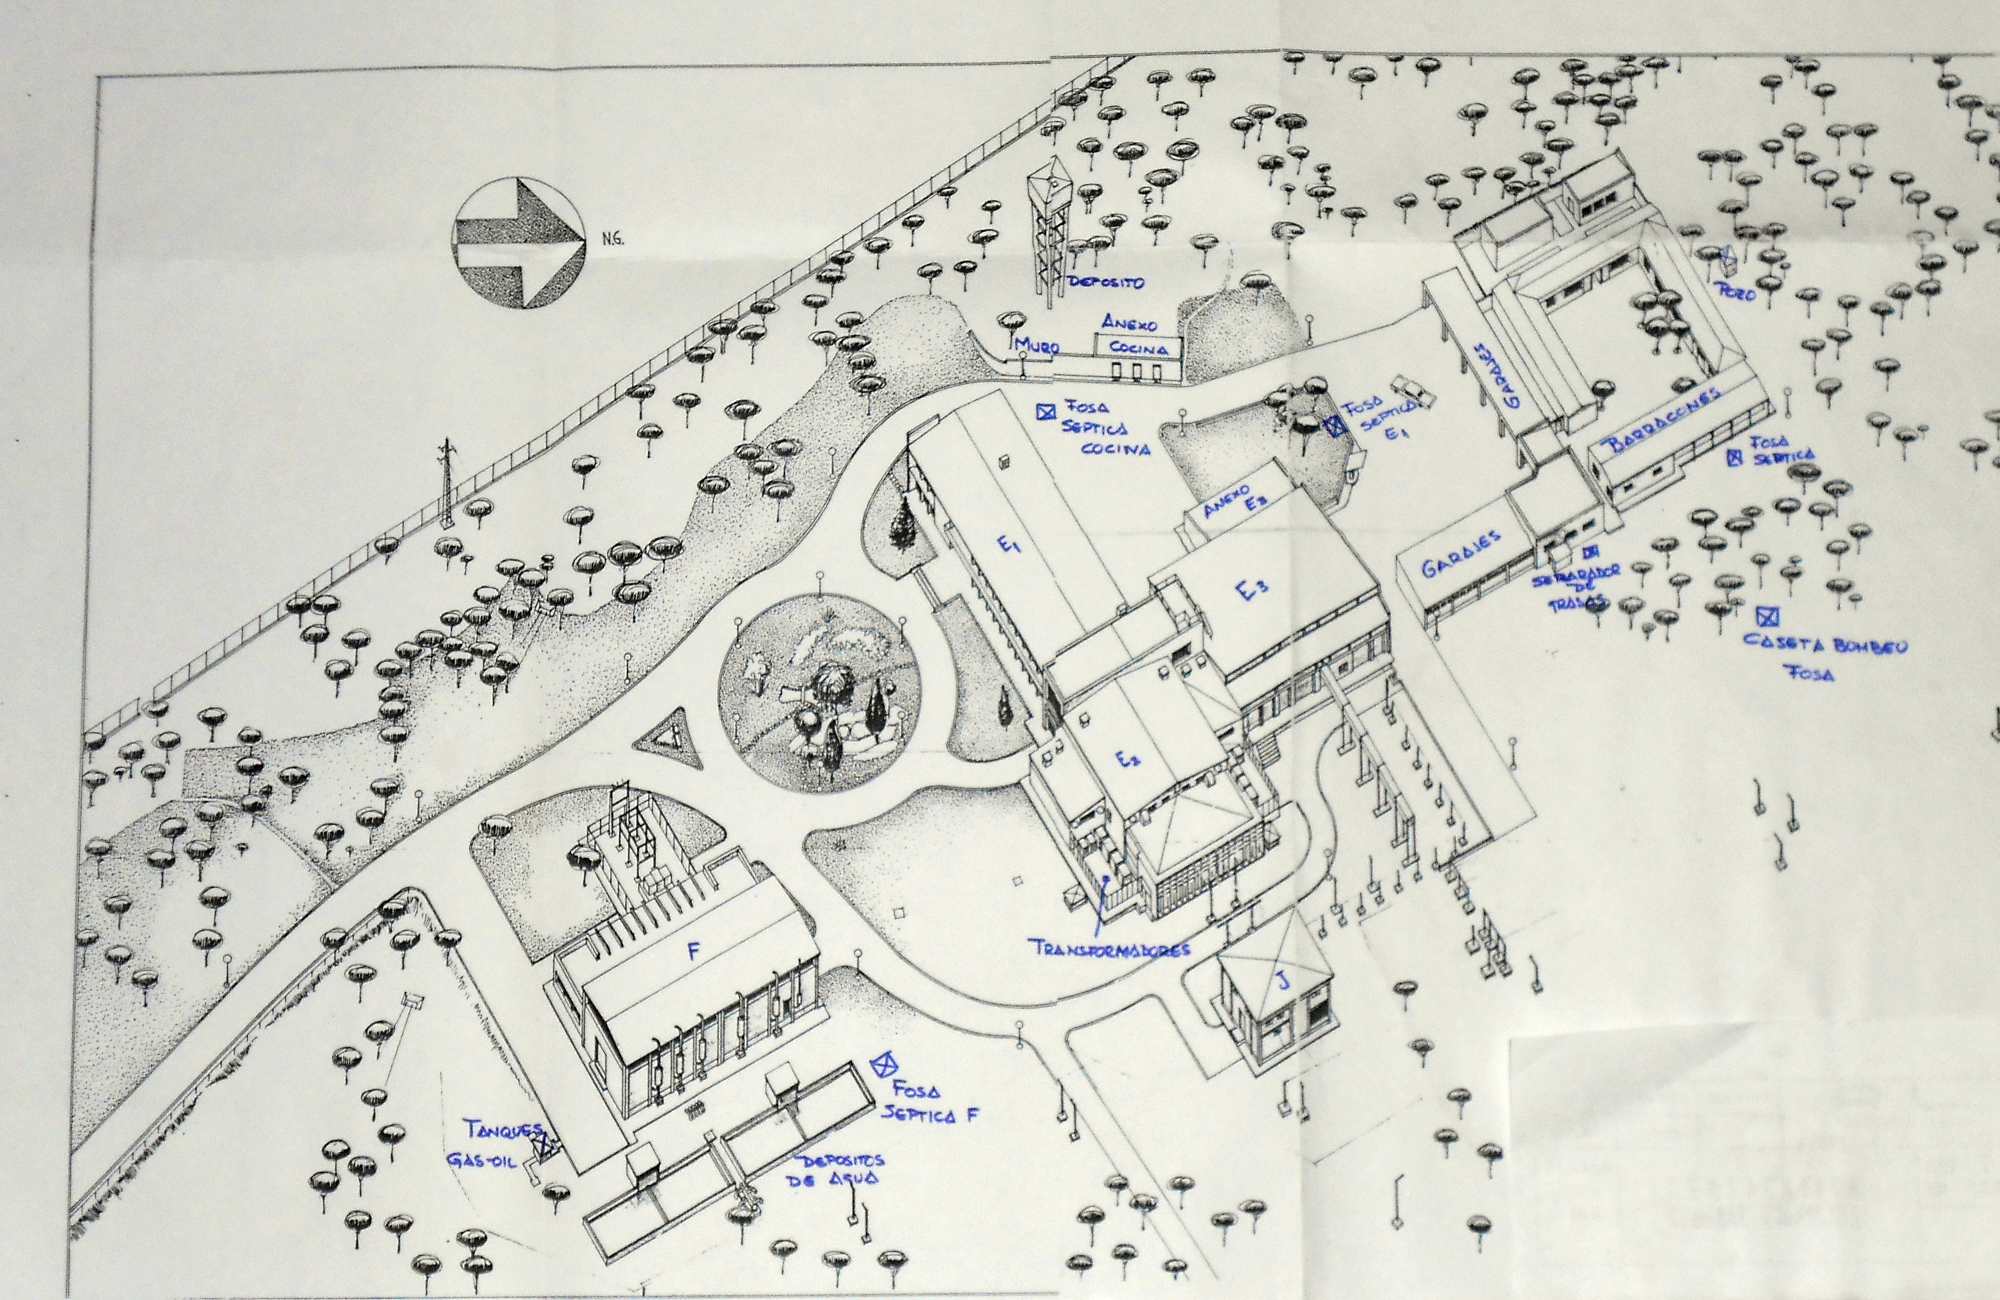 N.G.
DEPOSITO
ANEXO
COCINA
MURO
POZO
GARAJES
FOSA
SEPTICA
COCINA
FOSA
SEPTICA
E1
BARRACONES
FOSA
SEPTICA
ANEXO
E3
E1
E3
GARAJES
SEPARADOR
DE
TRASAS
CASETA BOMBEO
FOSA
E2
TRANSFORMADORES
F
J
FOSA
SEPTICA F
TANQUES
GAS-OIL
DEPOSITOS
DE AGUA